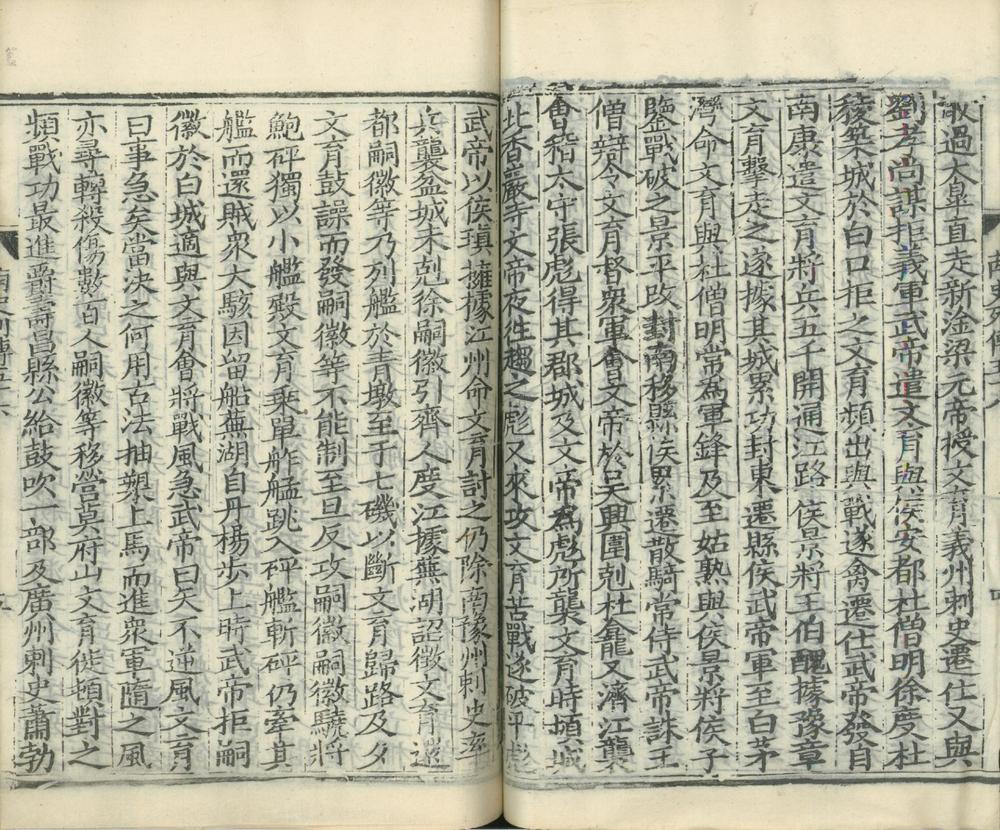 敢過太皐直走新淦梁元帝授文育義州刺史遷仕又與
劉孝尚謀拒義軍武帝遣文育與侯安都杜僧明徐度杜
稜築城於白口拒之文育頻出與戰遂禽遷仕武帝發自
南康遣文育將兵五千開通江路侯景將王伯醜據豫章
文育擊走之遂據其城累功封東遷縣侯武帝軍至白茅
灣命文育與杜僧明常為軍鋒及至姑熟與侯景將侯子
鑒戰破之景平改封南移縣侯累遷散騎常侍武帝誅王
僧辯令文育督衆軍會文帝於吳興圍剋杜龕又濟江襲
會稽太守張彪得其郡城及文帝為彪所襲文育時頓城
北香嚴寺文帝夜往趨之彪又來攻文育苦戰遂破平彪
武帝以侯瑱擁據江州命文育討之仍除南豫州刺史率
兵襲盆城未剋徐嗣徽引齊人度江據蕪湖詔徵文育還
都嗣徽等乃列艦於青墩至于七磯以斷文育歸路及夕
文育鼓譟而發嗣徽等不能制至旦反攻嗣徽嗣徽驍將
鮑砰獨以小艦殿文育乗單舴艋跳入砰艦斬砰仍牽其
艦而還賊衆大駭因留船蕪湖自丹楊步上時武帝拒嗣
徽於白城適與文育會將戰風急武帝曰矢不逆風文育
曰事急矣當決之何用古法抽槊上馬而進衆軍隨之風
亦尋轉殺傷數百人嗣徽等移營莫府山文育徙頓對之
頻戰功最進爵壽昌縣公給鼓吹一部及廣州刺史蕭勃